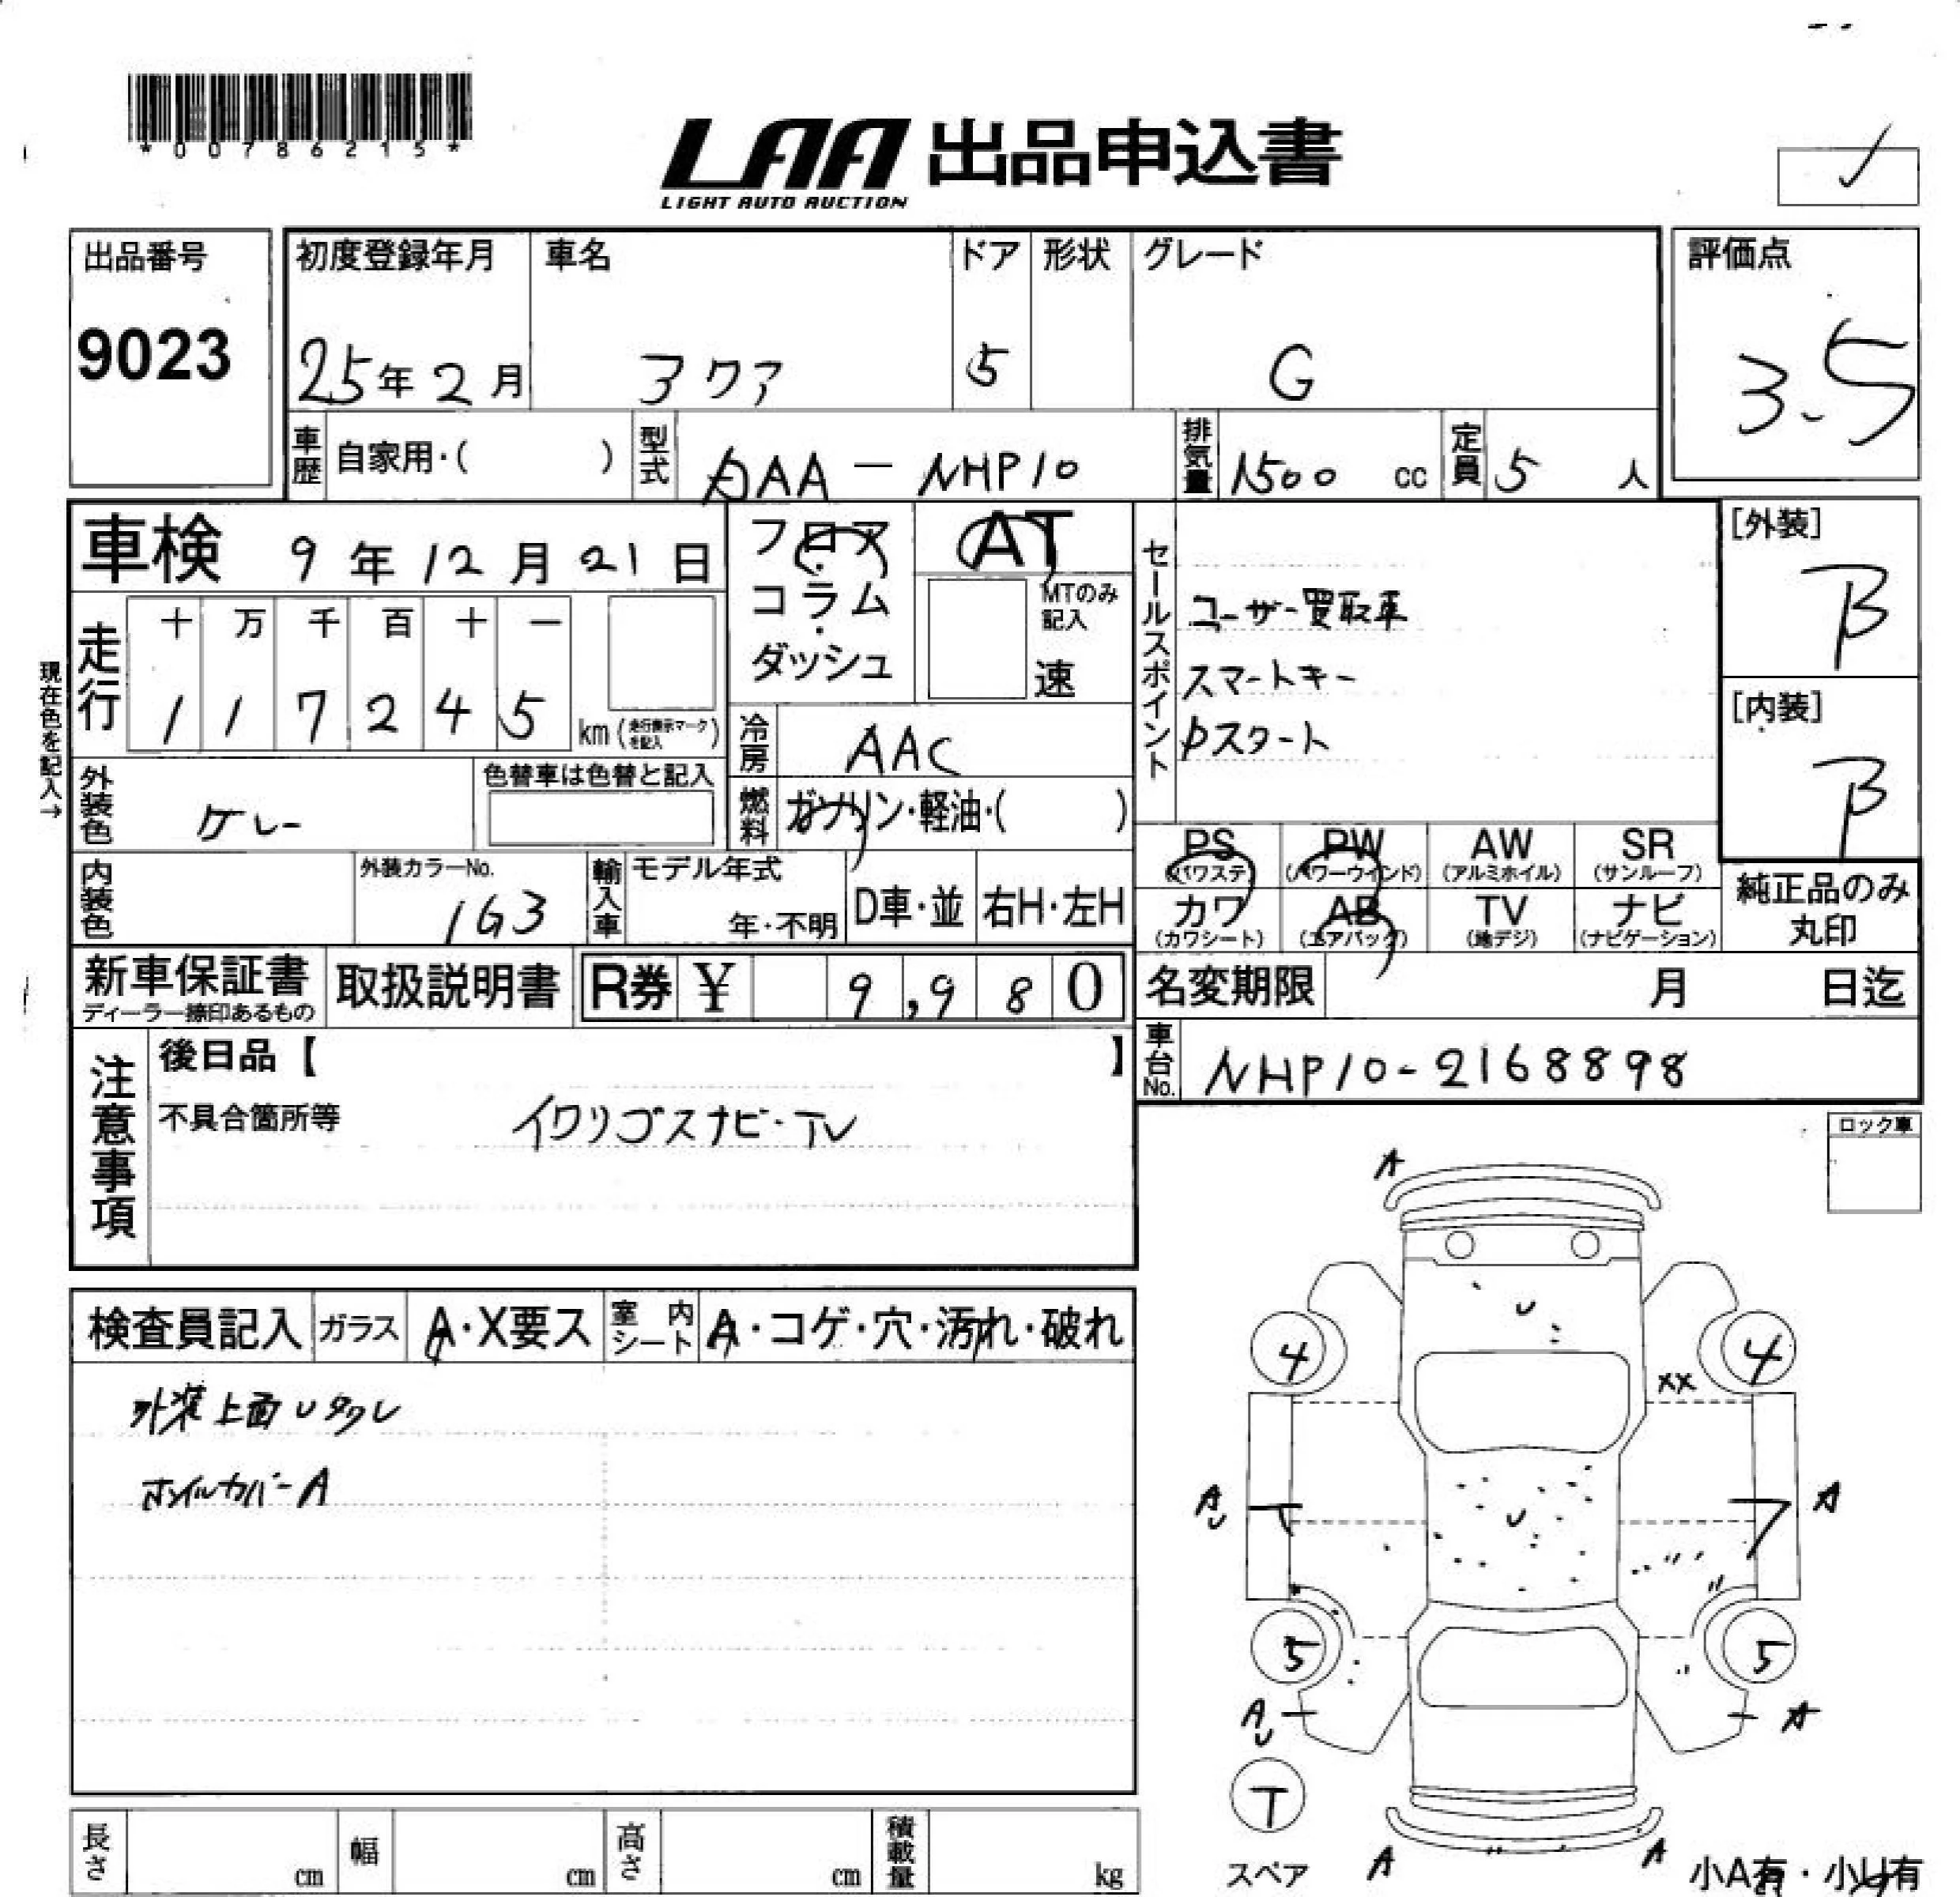 *00786215*
LAA 出品申込書
LIGHT AUTO AUCTION
出品番号
9023
初度登録年月
25年2月
車名
アクア
ドア
5
形状
グレード
G
評価点
3.5
車歴 自家用・( )
型式 DAA-NHP10
排気量 1500 cc
定員 5 人
車検 9年12月21日
フロア・コラム・ダッシュ
AT
MTのみ記入
速
セールスポイント
ユーザー買取車
スマートキー
Pスタート
[外装]
B
[内装]
B
現在色を記入→
走行
十 万 千 百 十 一
1 1 7 2 4 5
km(走行表示マークを記入)
冷房 AAC
燃料 ガソリン・軽油・( )
外装色 グレー
色替車は色替と記入
内装色
外装カラーNo.
1G3
輸入車 モデル年式
年・不明
D車・並
右H・左H
PS
(パワステ)
PW
(パワーウインド)
AW
(アルミホイル)
SR
(サンルーフ)
カワ
(カワシート)
AB
(エアバック)
TV
(地デジ)
ナビ
(ナビゲーション)
純正品のみ
丸印
新車保証書
ディーラー捺印あるもの
取扱説明書
R券 ¥ 9,980
名変期限 月 日迄
車台No. NHP10-2168898
注意事項
後日品【 】
不具合箇所等
イクリプスナビ・TV
ロック車
検査員記入
ガラス
A・X要ス
室内シート
A・コゲ・穴・汚れ・破れ
外装上面Uタクレ
ホイルカバーA
A
U
4
4
XX
A
U
U
A
5
5
A
U
A
T
スペア
A
A
小A有・小U有
長さ cm
幅 cm
高さ cm
積載量 kg